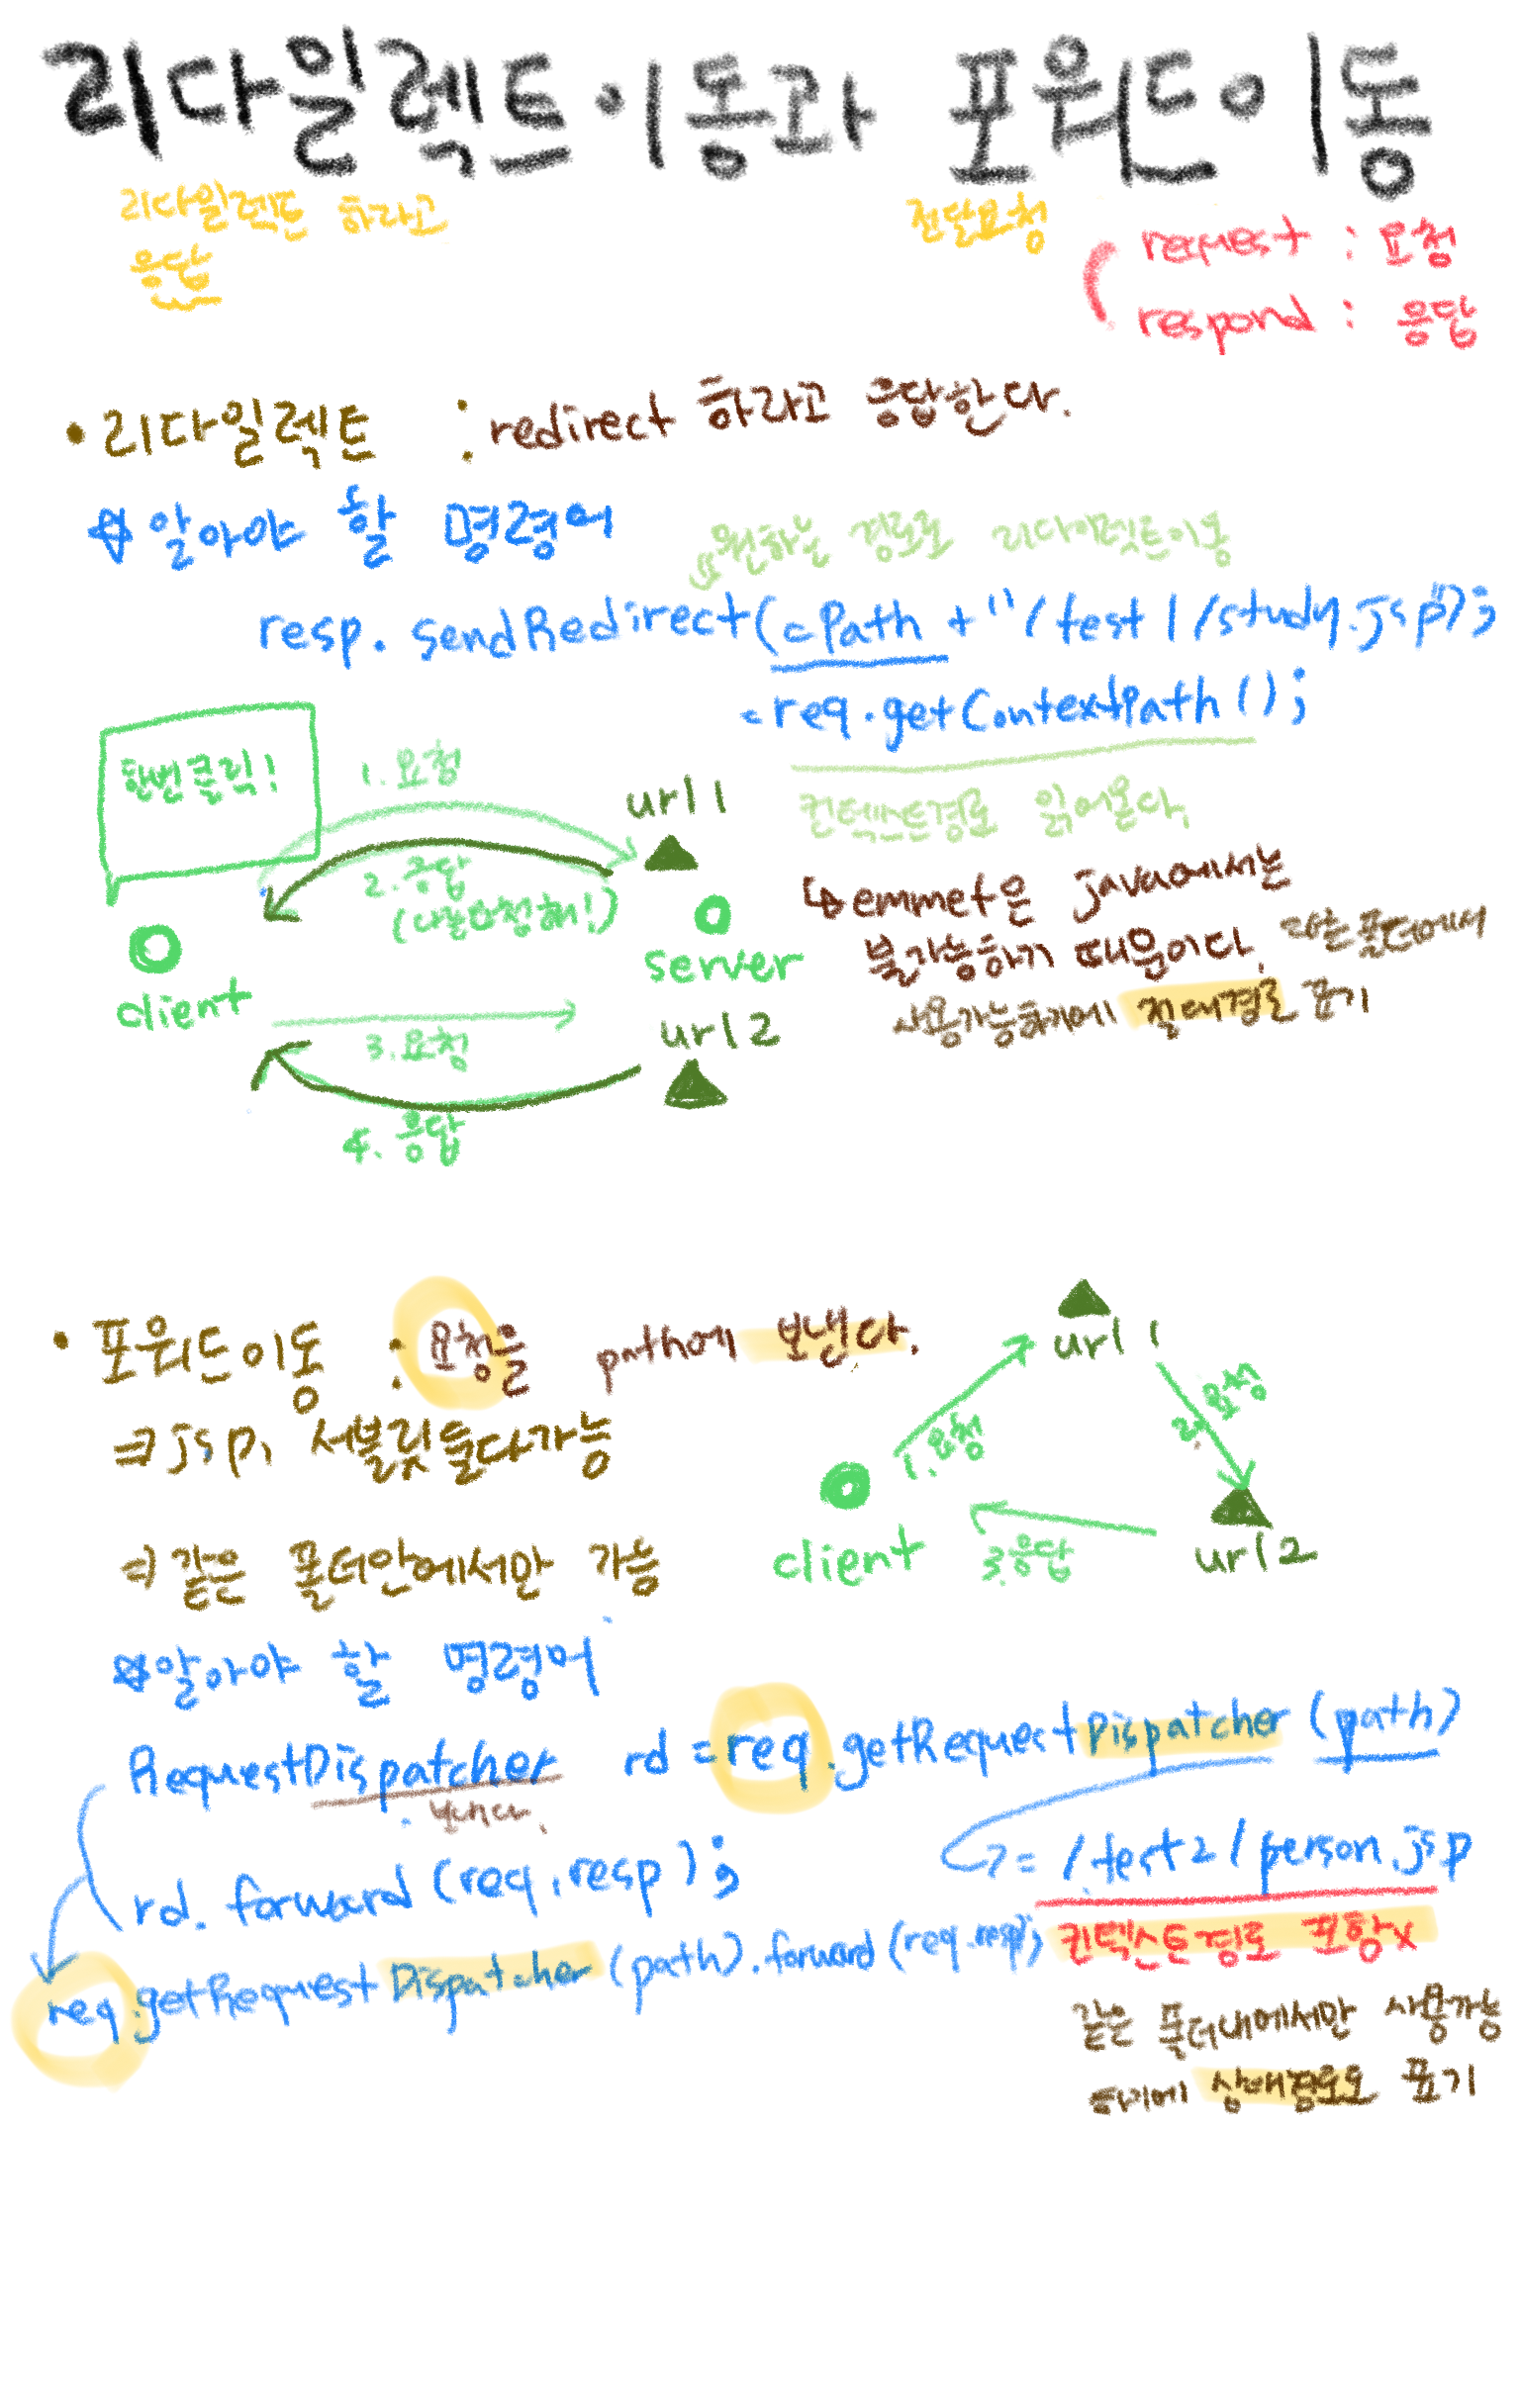 리다일렉트이동과 포워드이동
리다일렉트 하라고
응답
전달요청
request : 요청
respond : 응답
• 리다일렉트 : redirect 하라고 응답한다.
☆ 알아야 할 명령어
원하는 경로로 리다이렉트이동
resp. sendRedirect(cPath + "/test1/study.jsp");
= req.getContextPath();
컨텍스트경로 읽어온다.
한번클릭!
1. 요청
url 1
2. 응답
(다농요청해!)
client
server
3. 요청
url 2
4. 응답
↳ emmet은 java에서는
불가능하기 때문이다. 다른 폴더에서
사용가능하기에 절대경로 표기
• 포워드이동 : 요청을 path에 보낸다.
⇒ jsp, 서블릿둘다가능
⇒ 같은 폴더안에서만 가능
url 1
1. 요청
2. 요청
client
3. 응답
url 2
☆알아야 할 명령어
RequestDispatcher rd = req.getRequestDispatcher (path)
보내다.
rd. forward (req, resp);
= /test2/person.jsp
컨텍스트경로 포함x
req.getRequestDispatcher (path).forward (req.resp);
같은 폴더내에서만 사용가능
하기에 상대경로로 표기